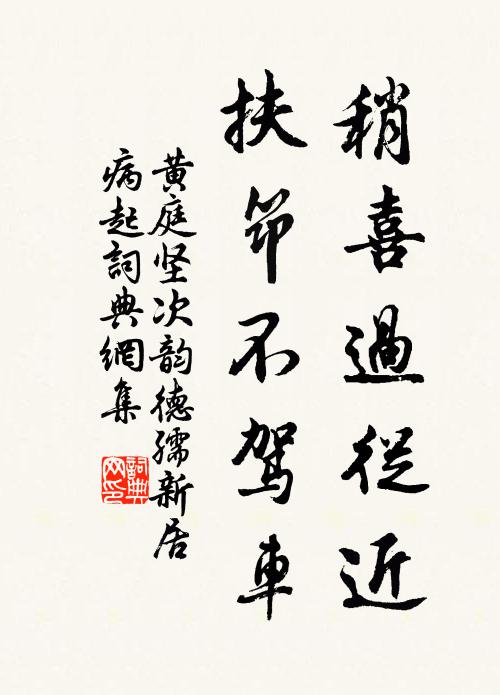 稍喜過從近
扶筇不駕車
黄庭坚次韵德孺新居
病起詞典網集
詞典
网印